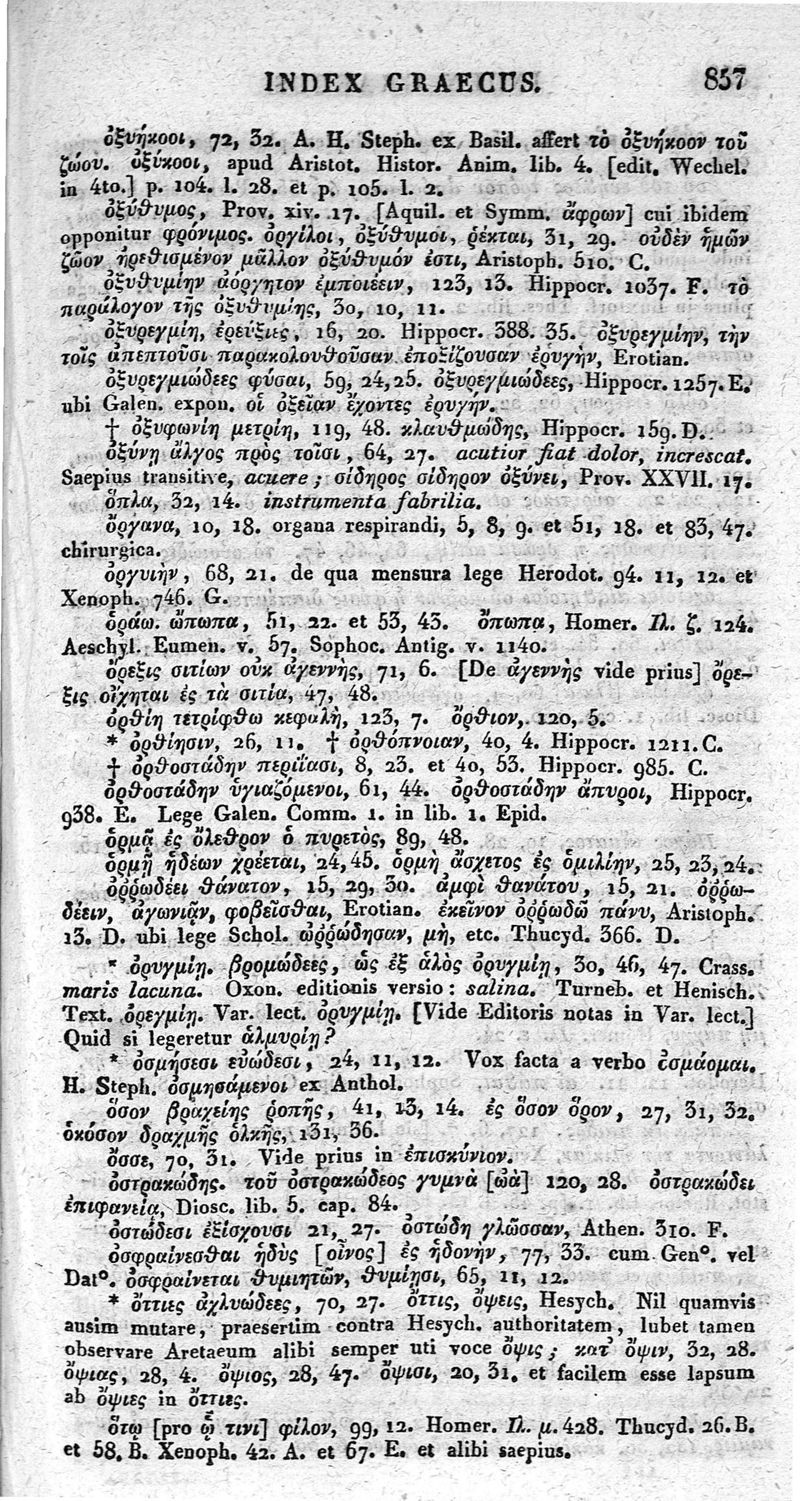 INDEX GRAECUS. 857
ὀξυήκοοι, 72, 32. A. H. Steph. ex Basil. affert τὸ ὀξυήκοον τοῦ
ζώου. ὀξύκοοι, apud Aristot. Histor. Anim. lib. 4. [edit. Wechel.
in 4to.] p. 104. l. 28. et p. 105. l. 2.
ὀξύθυμος, Prov. xiv. 17. [Aquil. et Symm. ἄφρων] cui ibidem
opponitur φρόνιμος. ὀργίλοι, ὀξύθυμοι, ῥέκται, 31, 29. οὐδὲν ἡμῶν
ζῶον ἠρεθισμένον μᾶλλον ὀξύθυμόν ἐστι, Aristoph. 510. C.
ὀξυθυμίην ἀόργητον ἐμποιέειν, 123, 13. Hippocr. 1037. F. τὸ
παράλογον τῆς ὀξυθυμίης, 30, 10, 11.
ὀξυρεγμίη, ἐρεύξιες, 16, 20. Hippocr. 388. 35. ὀξυρεγμίην, τὴν
τοῖς ἀπεπτοῦσι παρακολουθοῦσαν ἐποξίζουσαν ἐρυγὴν, Erotian.
ὀξυρεγμιώδεες φύσαι, 59, 24, 25. ὀξυρεγμιώδεες, Hippocr. 1257. E.
ubi Galen. expon. οἱ ὀξεῖαν ἔχοντες ἐρυγήν.
† ὀξυφωνίη μετρίη, 119, 48. κλαυθμώδης, Hippocr. 159. D.
ὀξύνῃ ἄλγος πρὸς τοῖσι, 64, 27. acutior fiat dolor, increscat.
Saepius transitive, acuere; σίδηρος σίδηρον ὀξύνει, Prov. XXVII. 17.
ὅπλα, 32, 14. instrumenta fabrilia.
ὄργανα, 10, 18. organa respirandi, 5, 8, 9. et 51, 18. et 83, 47.
chirurgica.
ὀργυιὴν, 68, 21. de qua mensura lege Herodot. 94. 11, 12. et
Xenoph. 746. G.
ὁράω. ὤπωπα, 51, 22. et 53, 43. ὄπωπα, Homer. Ιλ. ζ. 124.
Aeschyl. Eumen. v. 57. Sophoc. Antig. v. 1140.
ὄρεξις σιτίων οὐκ ἀγεννὴς, 71, 6. [De ἀγεννὴς vide prius] ὄρε-
ξις οἴχηται ἐς τὰ σιτία, 47, 48.
ὀρθίη τετρίφθω κεφαλὴ, 123, 7. ὄρθιον, 120, 5.
* ὀρθίησιν, 26, 11. † ὀρθόπνοιαν, 40, 4. Hippocr. 1211. C.
† ὀρθοστάδην περιΐασι, 8, 23. et 40, 53. Hippocr. 985. C.
ὀρθοστάδην ὑγιαζόμενοι, 61, 44. ὀρθοστάδην ἄπυροι, Hippocr.
938. E. Lege Galen. Comm. 1. in lib. 1. Epid.
ὁρμᾷ ἐς ὄλεθρον ὁ πυρετὸς, 89, 48.
ὁρμῇ ἡδέων χρέεται, 24, 45. ὁρμὴ ἄσχετος ἐς ὁμιλίην, 25, 23, 24.
ὀῤῥωδέει θάνατον, 15, 29, 30. ἀμφὶ θανάτου, 15, 21. ὀῤῥω-
δέειν, ἀγωνιᾷν, φοβεῖσθαι, Erotian. ἐκεῖνον ὀῤῥωδῶ πάνυ, Aristoph.
13. D. ubi lege Schol. ὠῤῥώδησαν, μὴ, etc. Thucyd. 366. D.
* ὀρυγμίῃ. βρομώδεες, ὡς ἐξ ἁλὸς ὀρυγμίῃ, 30, 46, 47. Crass.
maris lacuna. Oxon. editionis versio: salina. Turneb. et Henisch.
Text. ὀρεγμίῃ. Var. lect. ὀρυγμίῃ. [Vide Editoris notas in Var. lect.]
Quid si legeretur ἁλμυρίῃ?
* ὀσμήσεσι εὐώδεσι, 24, 11, 12. Vox facta a verbo ὀσμάομαι.
H. Steph. ὀσμησάμενοι ex Anthol.
ὅσον βραχείης ῥοπῆς, 41, 13, 14. ἐς ὅσον ὅρον, 27, 31, 32.
ὁκόσον δραχμῆς ὁλκῆς, 131, 36.
ὄσσε, 70, 31. Vide prius in ἐπισκύνιον.
ὀστρακώδης. τοῦ ὀστρακώδεος γυμνὰ [ὠὰ] 120, 28. ὀστρακώδει
ἐπιφανείᾳ, Diosc. lib. 5. cap. 84.
ὀστώδεσι ἐξίσχουσι 21, 27. ὀστώδη γλῶσσαν, Athen. 310. F.
ὀσφραίνεσθαι ἡδὺς [οἶνος] ἐς ἡδονὴν, 77, 33. cum Gen°. vel
Dat°. ὀσφραίνεται θυμιητῶν, θυμίησι, 65, 11, 12.
* ὄττιες ἀχλυώδεες, 70, 27. ὄττις, ὄψεις, Hesych. Nil quamvis
ausim mutare, praesertim contra Hesych. authoritatem, lubet tamen
observare Aretaeum alibi semper uti voce ὄψις; κατ' ὄψιν, 32, 28.
ὄψιας, 28, 4. ὄψιος, 28, 47. ὄψισι, 20, 31. et facilem esse lapsum
ab ὄψιες in ὄττιες.
ὅτῳ [pro ᾧ τινι] φίλον, 99, 12. Homer. Ιλ. μ. 428. Thucyd. 26. B.
et 58. B. Xenoph. 42. A. et 67. E. et alibi saepius.